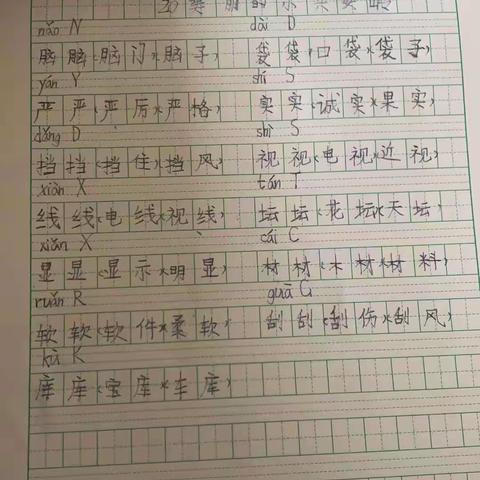 nǎo N dài D
脑脑(脑门)(脑子) 袋袋(口袋)(袋子)
yán Y shí S
严严(严厉)(严格) 实实(诚实)(果实)
dǎng D shì S
挡挡(挡住)(挡风) 视视(电视)(近视)
xiàn X tán T
线线(电线)(视线) 坛坛(花坛)(天坛)
xiǎn X cái C
显显(显示)(明显) 材材(木材)(材料)
ruǎn R guā G
软软(软件)(柔软) 刮刮(刮伤)(刮风)
kù K
库库(宝库)(车库)